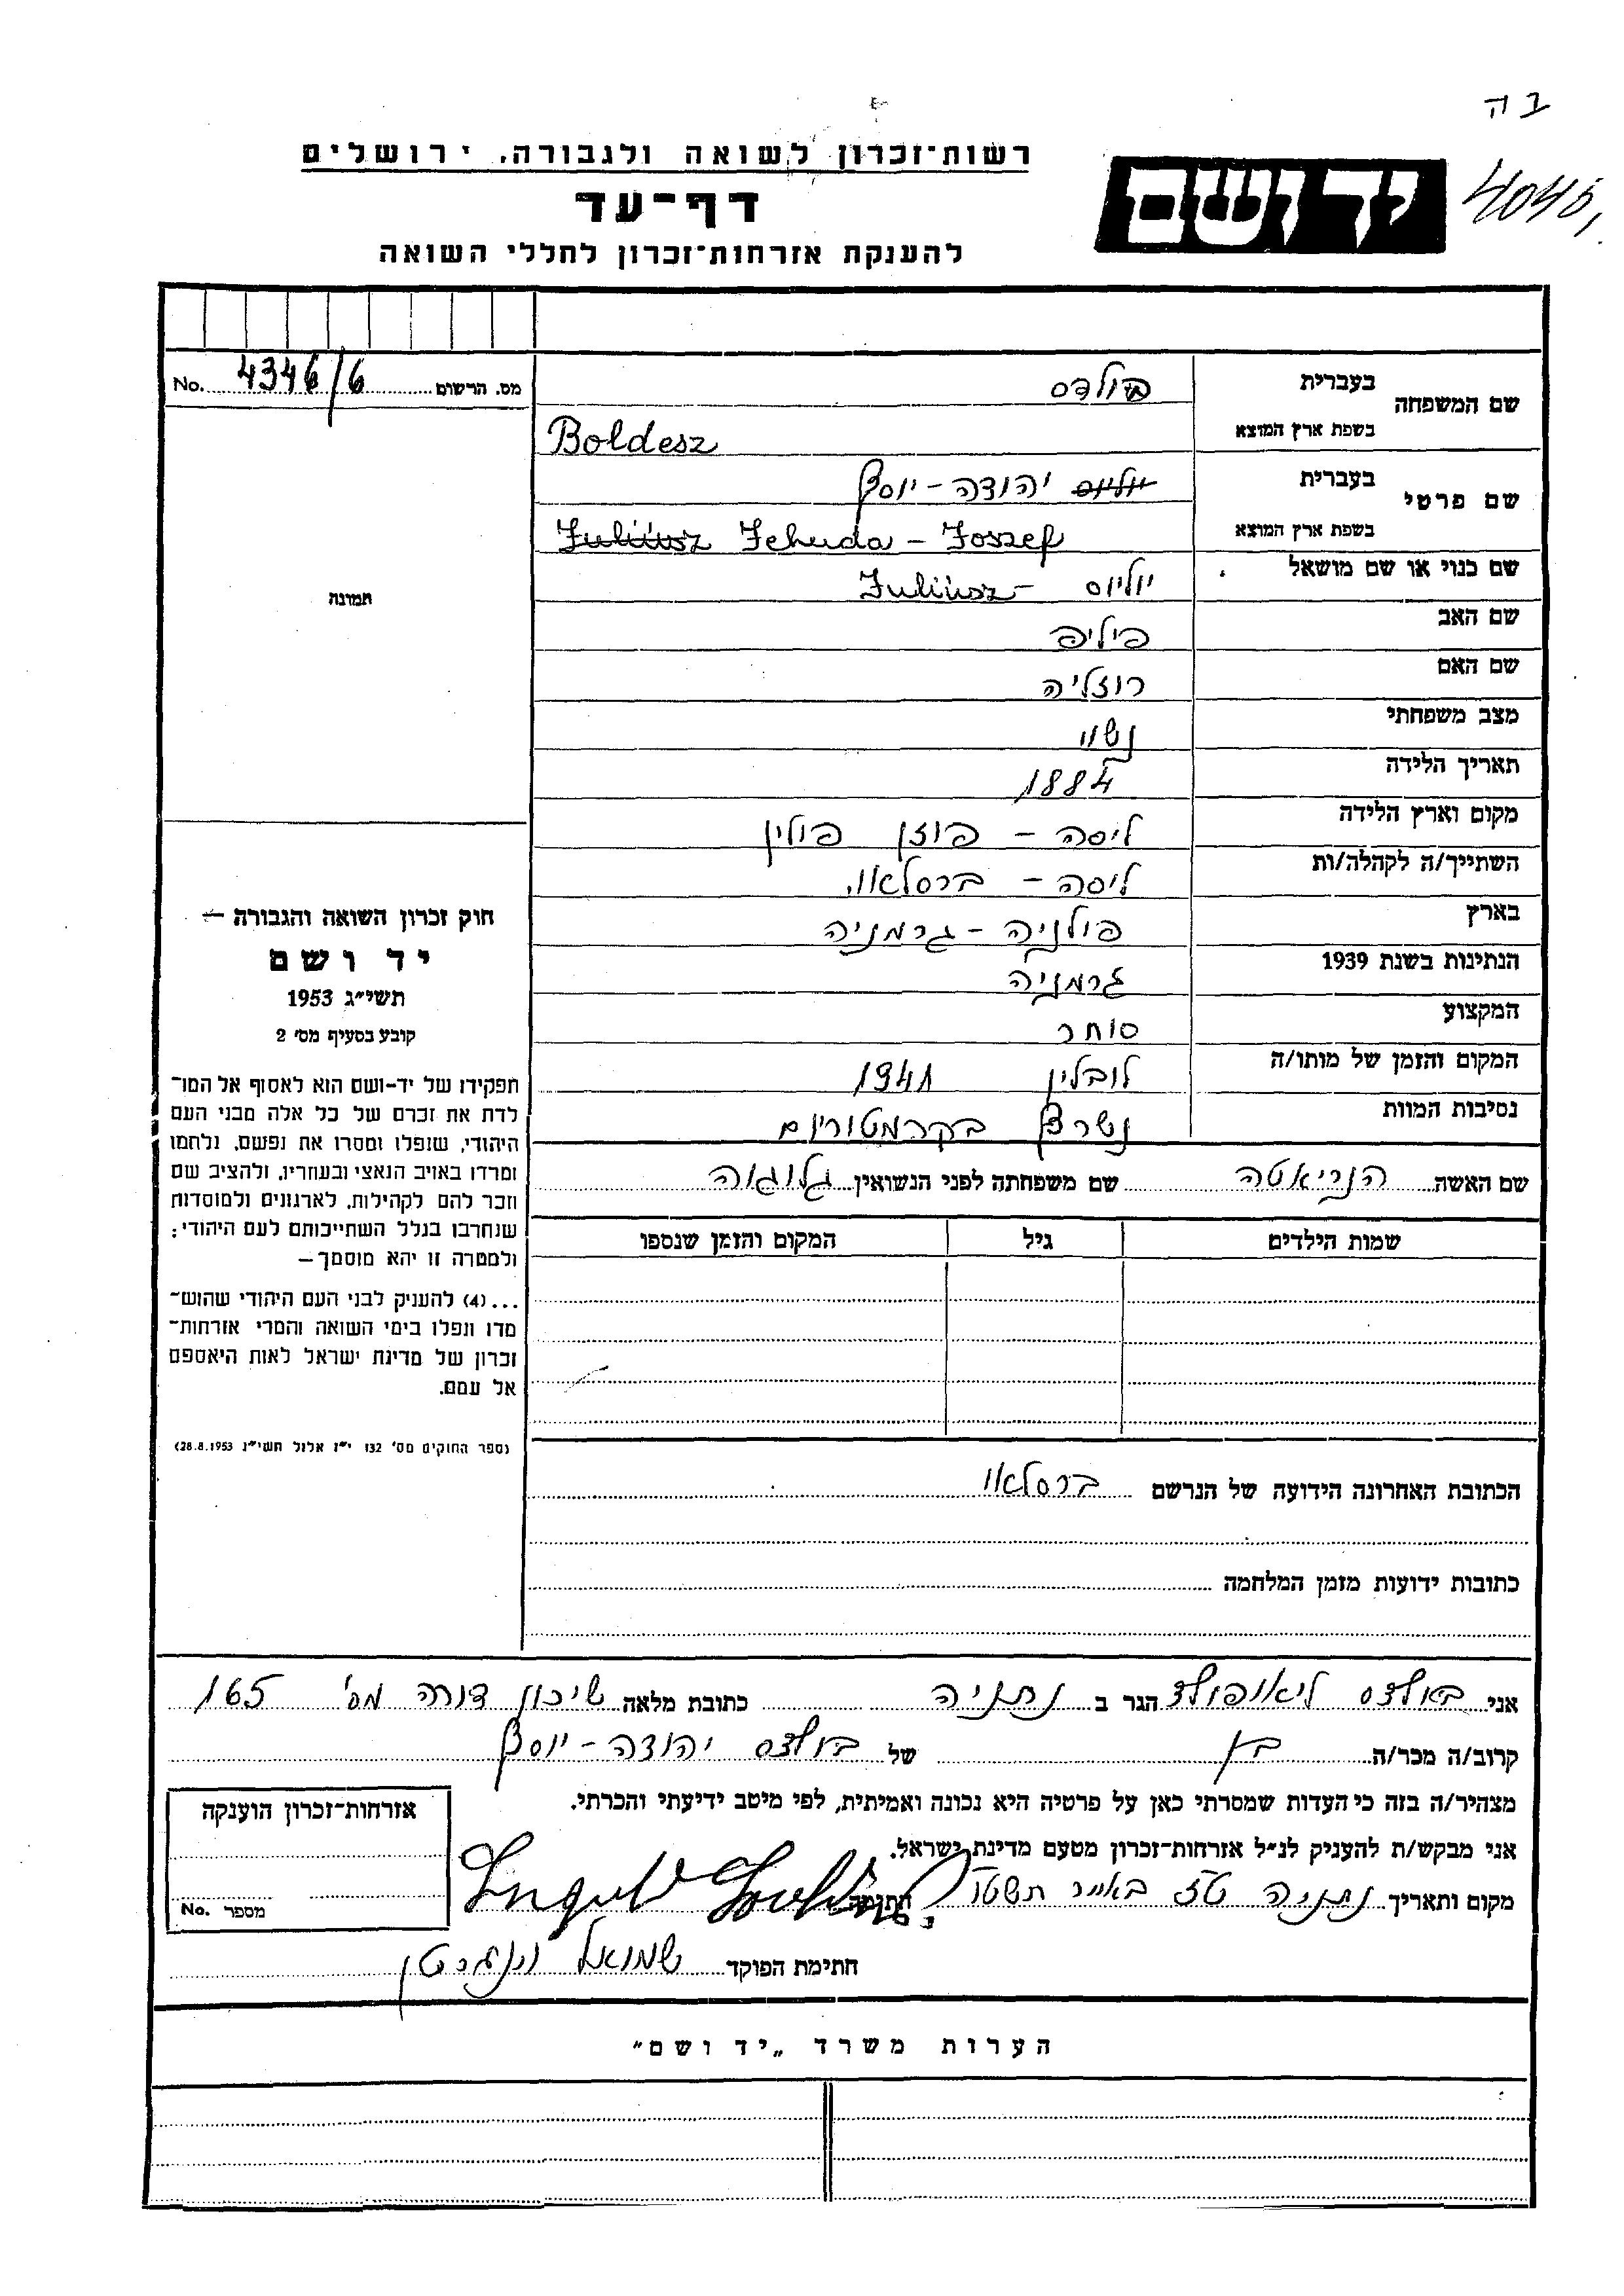 ב ה
4045,
רשות־זכרון לשואה ולגבורה, ירושלים
יד ושם
דף־עד
להענקת אזרחות־זכרון לחללי השואה
מס. הרשום 4346/6 No.
שם המשפחה בעברית בולדס
בשפת ארץ המוצא Boldesz
שם פרטי בעברית יוליוס יהודה - יוסף
בשפת ארץ המוצא Juliusz Jehuda - Joszef
שם כנוי או שם מושאל יוליוס - Juliusz
שם האב פיליפ
שם האם רוזליה
מצב משפחתי נשוי
תאריך הלידה 1884
מקום וארץ הלידה ליסה - פוזן פולין
השתייך/ה לקהלה/ות ליסה - ברסלאו
בארץ פולניה - גרמניה
הנתינות בשנת 1939 גרמניה
המקצוע סוחר
המקום והזמן של מותו/ה לובלין
נסיבות המוות נשרף בקרמטורים
תמונה
חוק זכרון השואה והגבורה —
יד ושם
תשי״ג 1953
קובע בסעיף מס׳ 2
תפקידו של יד-ושם הוא לאסוף אל המו־
לדת את זכרם של כל אלה מבני העם
היהודי, שנפלו ומסרו את נפשם, נלחמו
ומרדו באויב הנאצי ובעוזריו, ולהציב שם
וזכר להם לקהילות, לארגונים ולמוסדות
שנחרבו בגלל השתייכותם לעם היהודי:
ולמטרה זו יהא מוסמך—
...(4) להעניק לבני העם היהודי שהוש־
מדו ונפלו בימי השואה והמרי אזרחות־
זכרון של מדינת ישראל לאות היאספם
אל עמם.
(ספר החוקים מס׳ 132 י״ז אלול תשי״ג 28.8.1953)
שם האשה הנריאטה שם משפחתה לפני הנשואין גלוגוה
שמות הילדים גיל המקום והזמן שנספו
הכתובת האחרונה הידועה של הנרשם ברסלאו
כתובות ידועות מזמן המלחמה
אני בולדס ליאופולד הגר ב נתניה כתובת מלאה שיכון דורה מס' 165
קרוב/ה מכר/ה בן של בולדס יהודה - יוסף
מצהיר/ה בזה כי העדות שמסרתי כאן על פרטיה היא נכונה ואמיתית, לפי מיטב ידיעתי והכרתי.
אני מבקש/ת להעניק לנ״ל אזרחות־זכרון מטעם מדינת ישראל.
מקום ותאריך נתניה טז באייר תשטו חתימה
חתימת הפוקד שמואל וינגרטן
אזרחות־זכרון הוענקה
מספר No.
הערות משרד „יד ושם״